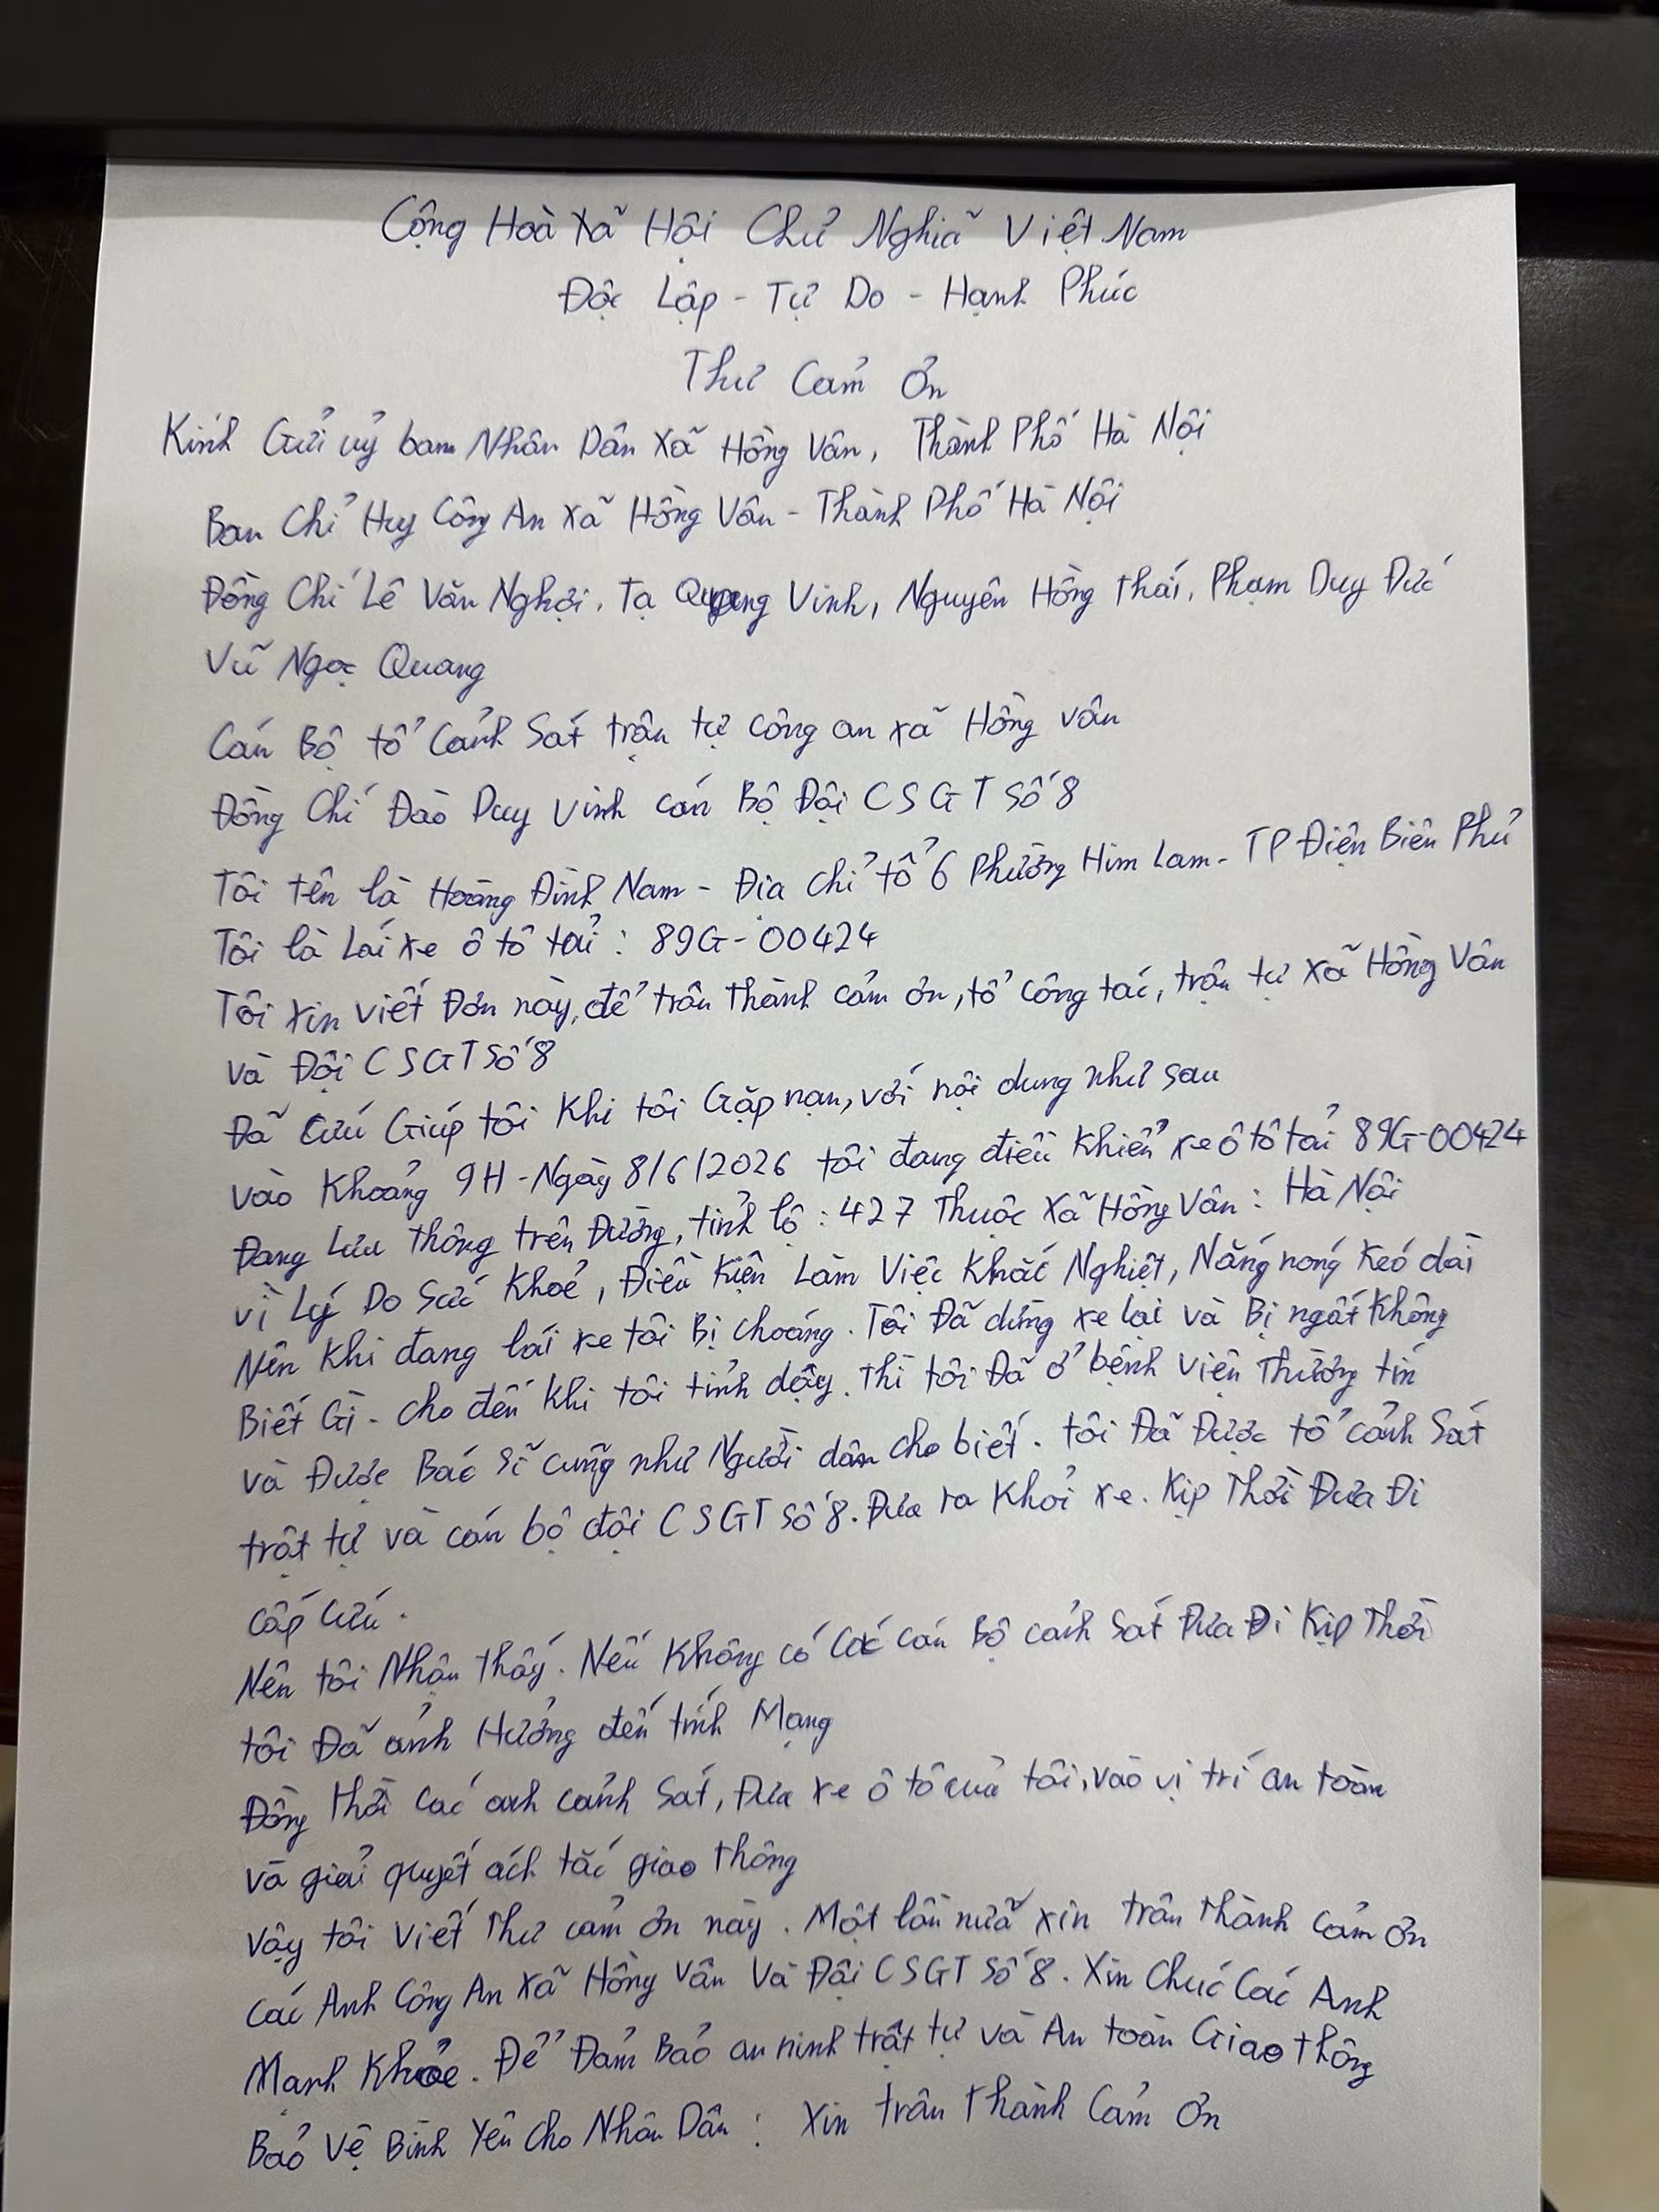 Cộng Hoà Xã Hội Chủ Nghiã Việt Nam
Độc Lập - Tự Do - Hạnh Phúc
Thư Cảm Ơn
Kính Gửi uỷ ban Nhân Dân Xã Hồng Vân, Thành Phố Hà Nội
Ban Chỉ Huy Công An Xã Hồng Vân - Thành Phố Hà Nội
Đồng Chí Lê Văn Nghợi, Tạ Quang Vinh, Nguyên Hồng Thái, Phạm Duy Đức
Vũ Ngọc Quang
Cán Bộ tổ Cảnh Sát trận tự công an xã Hồng vân
Đồng Chí Đào Duy Vinh cán Bộ Đội CSGT Số 8
Tôi tên là Hoàng Đình Nam - Địa chỉ tổ 6 Phường Him Lam - TP Điện Biên Phủ
Tôi là Lái xe ô tô tải : 89G-00424
Tôi xin viết Đơn này, để trân thành cảm ơn, tổ công tác, trận tự xã Hồng Vân
và Đội CSGT Số 8
Đã Cứu Giúp tôi Khi tôi Gặp nạn, với nội dung như sau
vào Khoảng 9H - Ngày 8/6/2026 tôi đang điều khiển xe ô tô tải 89G-00424
Đang Lưu thông trên Đường, tỉnh lộ : 427 Thuộc Xã Hồng Vân : Hà Nội
vì Lý Do Sức Khoẻ, Điều Kiện Làm Việc Khắc Nghiệt, Nắng nóng Kéo dài
Nên Khi đang lái xe tôi Bị choáng. Tôi Đã dừng xe lại và Bị ngất Không
Biết Gì - cho đến khi tôi tỉnh dậy. Thì tôi Đã ở bệnh viện Thường tín
và Được Bác sĩ cũng như Người dân cho biết. tôi Đã Được tổ cảnh Sát
trật tự và cán bộ đội CSGT Số 8. Đưa ra Khỏi xe. Kịp Thời Đưa Đi
Cấp Cứu.
Nên tôi Nhận thấy. Nếu Không có Các cán Bộ cảnh Sát Đưa Đi Kịp Thời
tôi Đã ảnh Hưởng đến tính Mạng
Đồng thời Các anh cảnh Sát, Đưa xe ô tô của tôi, vào vị trí an toàn
và giải quyết ách tắc giao thông
Vậy tôi Viết Thư cảm ơn này. Một lần nữa xin trân thành Cảm ơn
Các Anh Công An Xã Hồng Vân Và Đội CSGT Số 8. Xin Chúc Các Anh
Mạnh Khỏe. Để Đảm Bảo an ninh trật tự và An toàn Giao thông
Bảo Vệ Bình Yên Cho Nhân Dân : Xin trân thành Cảm Ơn